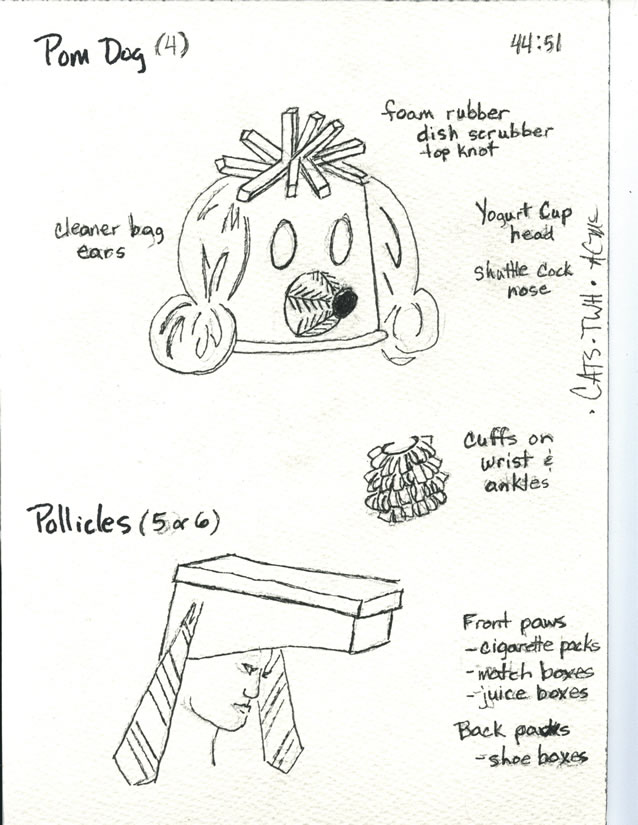 Pom Dog (4)
44:51
foam rubber
dish scrubber
top knot
cleaner bag
ears
Yogurt Cup
head
shuttle cock
nose
cuffs on
wrist &
ankles
Pollicles (5 or 6)
Front paws
- cigarette packs
- match boxes
- juice boxes
Back paws
- shoe boxes
· CATS · TWH ·